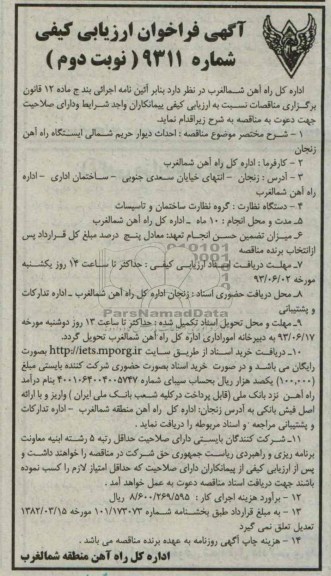 آگهی فراخوان ارزیابی کیفی
شماره ۹۳۱۱ ( نوبت دوم )
اداره کل راه آهن شمالغرب در نظر دارد بنابر آئین نامه اجرائی بند ج ماده ۱۲ قانون
برگزاری مناقصات نسبت به ارزیابی کیفی پیمانکاران واجد شرایط ودارای صلاحیت
جهت دعوت به مناقصه به شرح زیراقدام نماید.
۱ – شرح مختصر موضوع مناقصه : احداث دیوار حریم شمالی ایستگاه راه آهن
زنجان
۲ – کارفرما : اداره کل راه آهن شمالغرب
۳ – آدرس : زنجان – انتهای خیابان سعدی جنوبی – ساختمان اداری – اداره
راه آهن شمالغرب
۴ – دستگاه نظارت : گروه نظارت ساختمان و تاسیسات
۵ – مدت و محل انجام : ۱۰ ماه – اداره کل راه آهن شمالغرب
۶ – میزان تضمین حسن انجام تعهد: معادل پنج درصد مبلغ کل قرارداد پس
ازانتخاب برنده مناقصه
۷ – مهلت دریافت اسناد ارزیابی کیفی : حداکثر تا ساعت ۱۴ روز یکشنبه
مورخه ۹۳/۰۶/۰۲
۸ – محل دریافت حضوری اسناد : زنجان اداره کل راه آهن شمالغرب – اداره تدارکات
و پشتیبانی
۹ – مهلت و محل تحویل اسناد تکمیل شده : حداکثر تا ساعت ۱۳ روز دوشنبه مورخه
۹۳/۰۶/۱۷ به دبیرخانه اموراداری اداره کل راه آهن شمالغرب تحویل گردد.
۱۰ – دریافت خرید اسناد از طریق سایت http://iets.mporg.ir بصورت
رایگان می باشد و در صورت خرید اسناد بصورت حضوری شرکت کننده بایستی مبلغ
(۱۰۰,۰۰۰) یکصد هزار ریال بحساب سیبای شماره ۴۰۰۱۰۶۴۰۰۴۰۰۵۷۴۷ بنام درآمد
راه آهن نزد بانک ملی (قابل پرداخت درکلیه شعب بانک ملی ایران ) واریز و با ارائه
اصل فیش بانکی به آدرس زنجان: اداره کل راه آهن منطقه شمالغرب – اداره تدارکات
و پشتیبانی مراجعه و اسناد مربوطه را دریافت نماید .
۱۱ – شرکت کنندگان بایستی دارای صلاحیت حداقل رتبه ۵ رشته ابنیه معاونت
برنامه ریزی و راهبردی ریاست جمهوری حق شرکت در مناقصه را خواهند داشت و
پس از ارزیابی کیفی از پیمانکاران دارای صلاحیت که حداقل امتیاز لازم را کسب نموده
باشند جهت دریافت اسناد مناقصه دعوت به عمل خواهد آمد .
۱۲ – برآورد هزینه اجرای کار : ۸/۶۰۰/۲۶۹/۵۹۵ ریال
۱۳ – به مبلغ قرارداد طبق بخشنامه شماره ۱۰۱/۱۷۳۰۷۳ مورخه ۱۳۸۲/۰۳/۱۵
تعدیل تعلق نمی گیرد
۱۴ – هزینه چاپ آگهی روزنامه به عهده برنده مناقصه می باشد .
اداره کل راه آهن منطقه شمالغرب